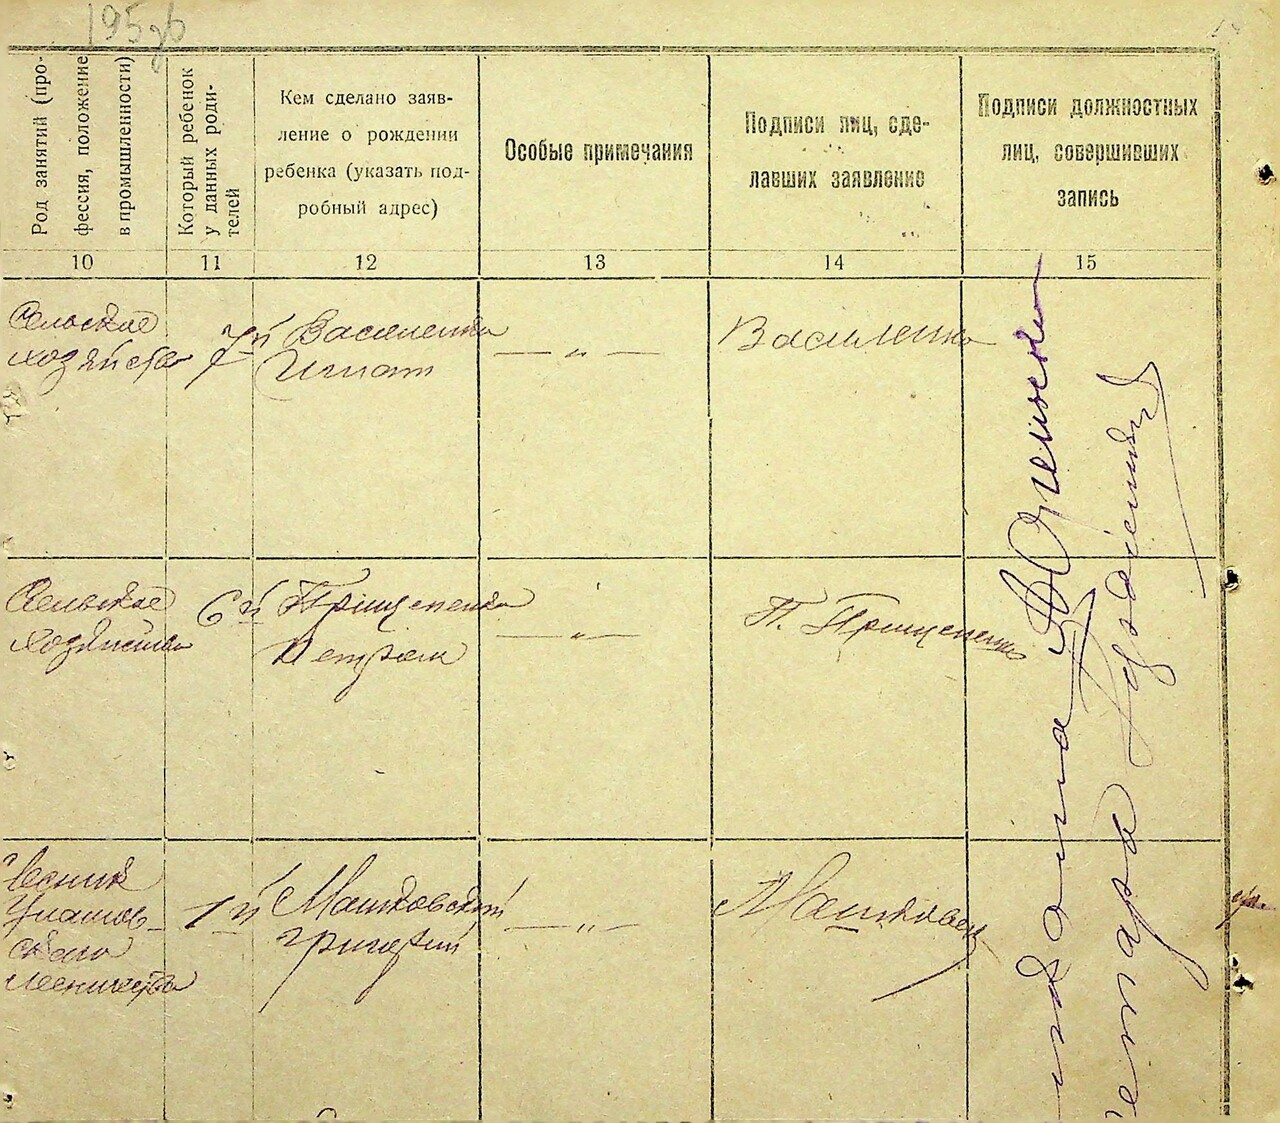 195об
Род занятий (про-
фессия, положение
в промышленности)
Который ребенок
у данных роди-
телей
Кем сделано заяв-
ление о рождении
ребенка (указать под-
робный адрес)
Особые примечания
Подписи лиц, сде-
лавших заявление
Подписи должностных
лиц, совершивших
запись
10
11
12
13
14
15
Сельское
хозяйство
7й
Василенко
Игнат
— „ —
Василенко
Сельское
хозяйство
6й
Прищепенко
Петром
— „ —
П. Прищепенко
Лесник
лесничества
1й
Машковский
Григорий
— „ —
Машковск